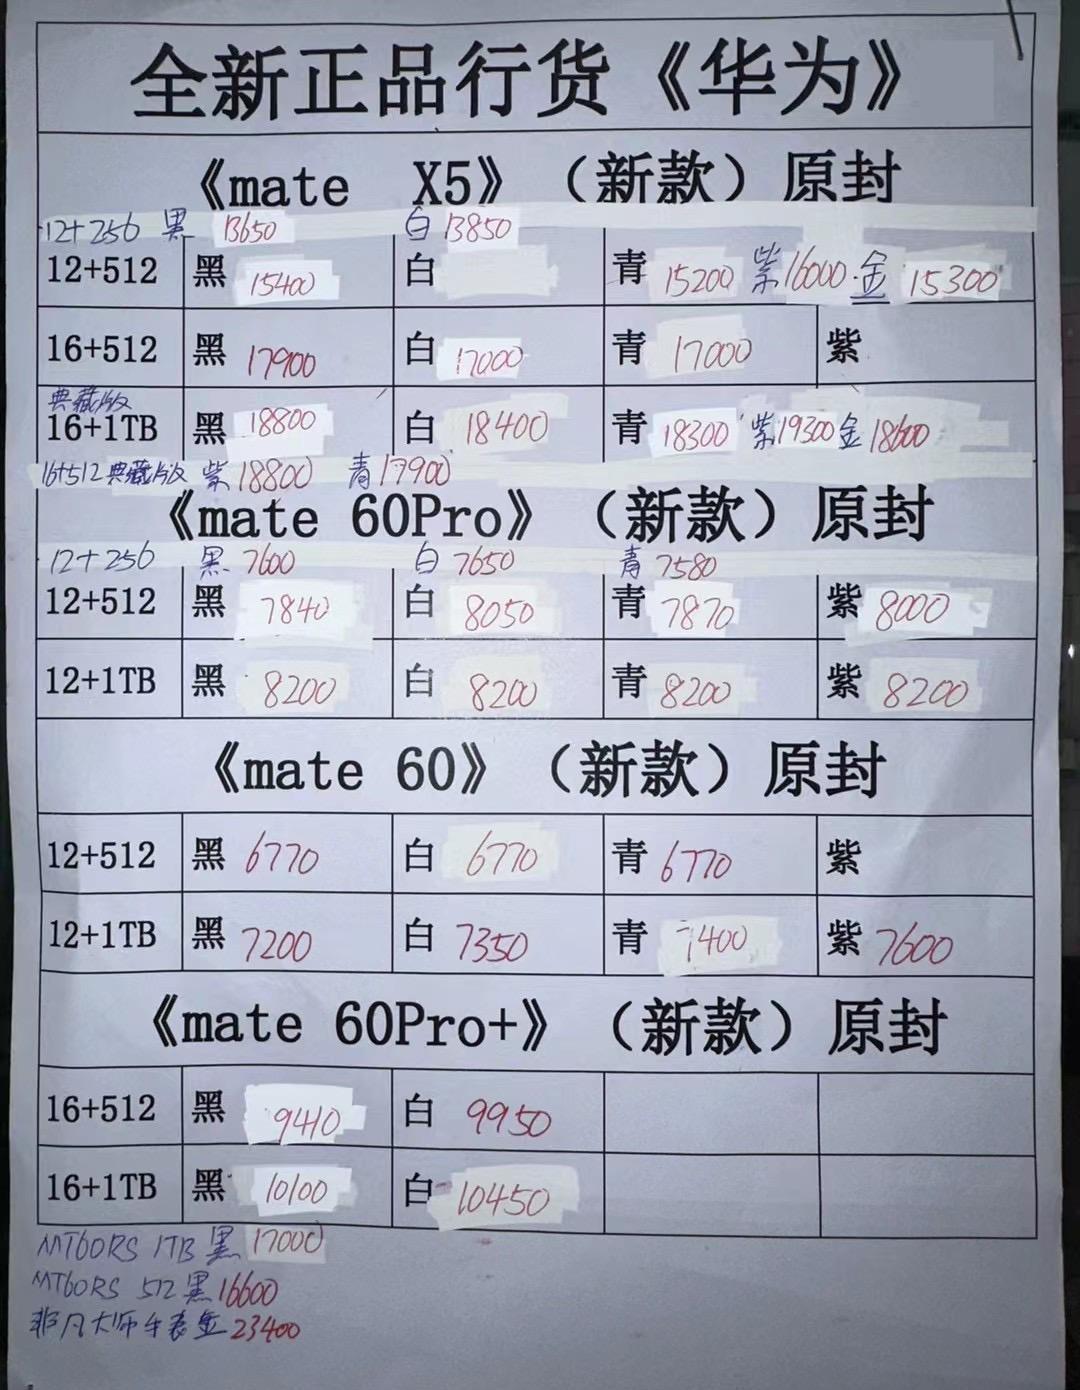 全新正品行货《华为》
《mate X5》（新款）原封
12+256 黑 13650 白 13850
12+512 黑 15400 白 青 15200 紫 16000 金 15300
16+512 黑 17900 白 17000 青 17000 紫
典藏版
16+1TB 黑 18800 白 18400 青 18300 紫 19300 金 18600
16+512 典藏版 紫 18800 青 17900
《mate 60Pro》（新款）原封
12+256 黑 7600 白 7650 青 7580
12+512 黑 7840 白 8050 青 7870 紫 8000
12+1TB 黑 8200 白 8200 青 8200 紫 8200
《mate 60》（新款）原封
12+512 黑 6770 白 6770 青 6770 紫
12+1TB 黑 7200 白 7350 青 7400 紫 7600
《mate 60Pro+》（新款）原封
16+512 黑 9410 白 9950
16+1TB 黑 10100 白 10450
MT60RS 1TB 黑 17000
MT60RS 512 黑 16600
非凡大师手表金 23400